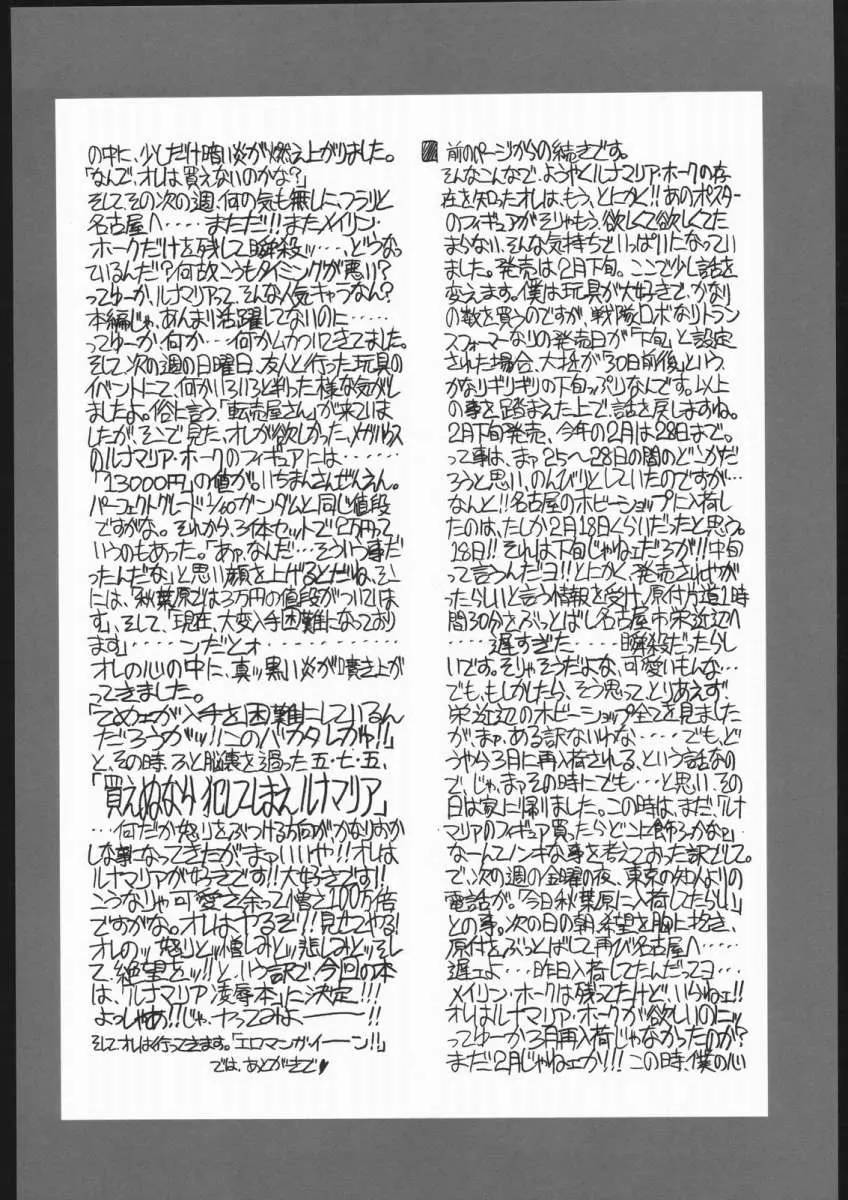 前のページからの続きです。
そんなこんなで、ようやくルナマリア・ホークの存
在を知ったオレは、もう、とにかく!!あのポスター
のフィギュアがそりゃもう、欲しくて欲しくてた
まらない、そんな気持ちでいっぱいになってい
ました。発売は2月下旬。ここで少し話を
変えます。僕は玩具が大好きで、かなり
の数を買うのですが、戦隊ロボなりトラン
スフォーマーなりの発売日が「下旬」と設定
された場合、大抵が「30日前後」という、
かなりギリギリの下旬っぷりなんです。以上
の事を踏まえた上で話を戻しますね。
2月下旬発売、今年の2月は28日まで。
って事は、まァ25〜28日の間のどこかだ
ろうと思い、のんびりとしていたのですが…
なんと!!名古屋のホビーショップに入荷し
たのは、たしか2月18日くらいだったと思う。
18日!!それは下旬じゃねェだろが!!中旬
って言うんだヨ!!とにかく、発売されやが
ったらしいと言う情報を受け、原付片道1時
間30分をぶっとばし名古屋市栄近辺へ
……遅すぎた……瞬殺だったらし
いです。そりゃそうだよな、可愛いもんな…
でも、もしかしたら、そう思って、とりあえず、
栄近辺のホビーショップ全てを見ました
が、まァ、ある訳ないわな……でも、ど
うやら3月に再入荷される、という話なの
で、じゃ、まァその時にでも…と思い、その
日は家に帰りました。この時は、まだ、「ルナ
マリアのフィギュア買ったらどこに飾ろかなァ」
なーんてノンキな事を考えておった訳でして。
で、次の週の金曜の夜、東京の知人よりの
電話が。「今日秋葉原に入荷したらしい」
との事。次の日の朝、希望を胸に抱き、
原付をぶっとばして再び名古屋へ……
遅ェよ…昨日入荷してたんだってヨ…
メイリン・ホークは残ってたけど、いらねェ!!
オレはルナマリア・ホークが欲しいのニッ
ってゆーか3月再入荷じゃなかったのか?
まだ2月じゃねェか!!!この時、僕の心
の中に、少しだけ暗い炎が燃え上がりました。
「なんで、オレは買えないのかな?」
そして、その次の週、何の気も無しに、フラリと
名古屋へ……まただ!!またメイリン・
ホークだけを残して瞬殺ッ…、どうなっ
ているんだ!?何故こうもタイミングが悪い?
ってゆーか、ルナマリアって、そんな人気キャラなん?
本編じゃ、あんまり活躍してないのに……
ってゆーか、何か…何かムカついてきてました。
そして、次の週の日曜日、友人と行った玩具の
イベントにて、何かいろいろと判った様な気がし
ましたよ。俗に言う、「転売屋さん」が来ていま
したが、そこで見た、オレが欲しかった、メガハウス
のルナマリア・ホークのフィギュアには………
「13000円」の値が。いちまんさんぜんえん。
パーフェクトグレード1/60ガンダムと同じ値段
ですがな。それから、3体セットで2万円って
いうのもあった。「あァ、なんだ…そういう事だ
ったんだな」と思い顔を上げるとだね、そこ
には、「秋葉原では3万円の値段がついていま
す」、そして、「現在、大変入手困難になっており
ます」……ンだとォ……………
オレの心の中に、真ッ黒い炎が噴き上が
ってきました。
「てめェが入手を困難にしているん
だろうがッ!!このバカタレがァ!!」
と、その時、ふと脳裏を過った五・七・五、
「買えぬなら 犯してしまえ ルナマリア」
…何だか怒りをぶつける方向がかなりおか
しな事になってきたが、まァいいや!!オレは
ルナマリアが好きです!!大好きです!!
こうなりゃ可愛さ余って憎さ100万倍
ですがな。オレはやるぞ!!見せてやる!
オレのッ怒りとッ憎しみとッ悲しみとッそし
て、絶望をッ!!と、いう訳で、今回の本
は、「ルナマリア凌辱本」に決定!!!
よっしゃあ!!!じゃ、ヤってみよーーー!!
そしてオレは行ってきます。「エロマンガイーーン!!」
では、あとがきで♥